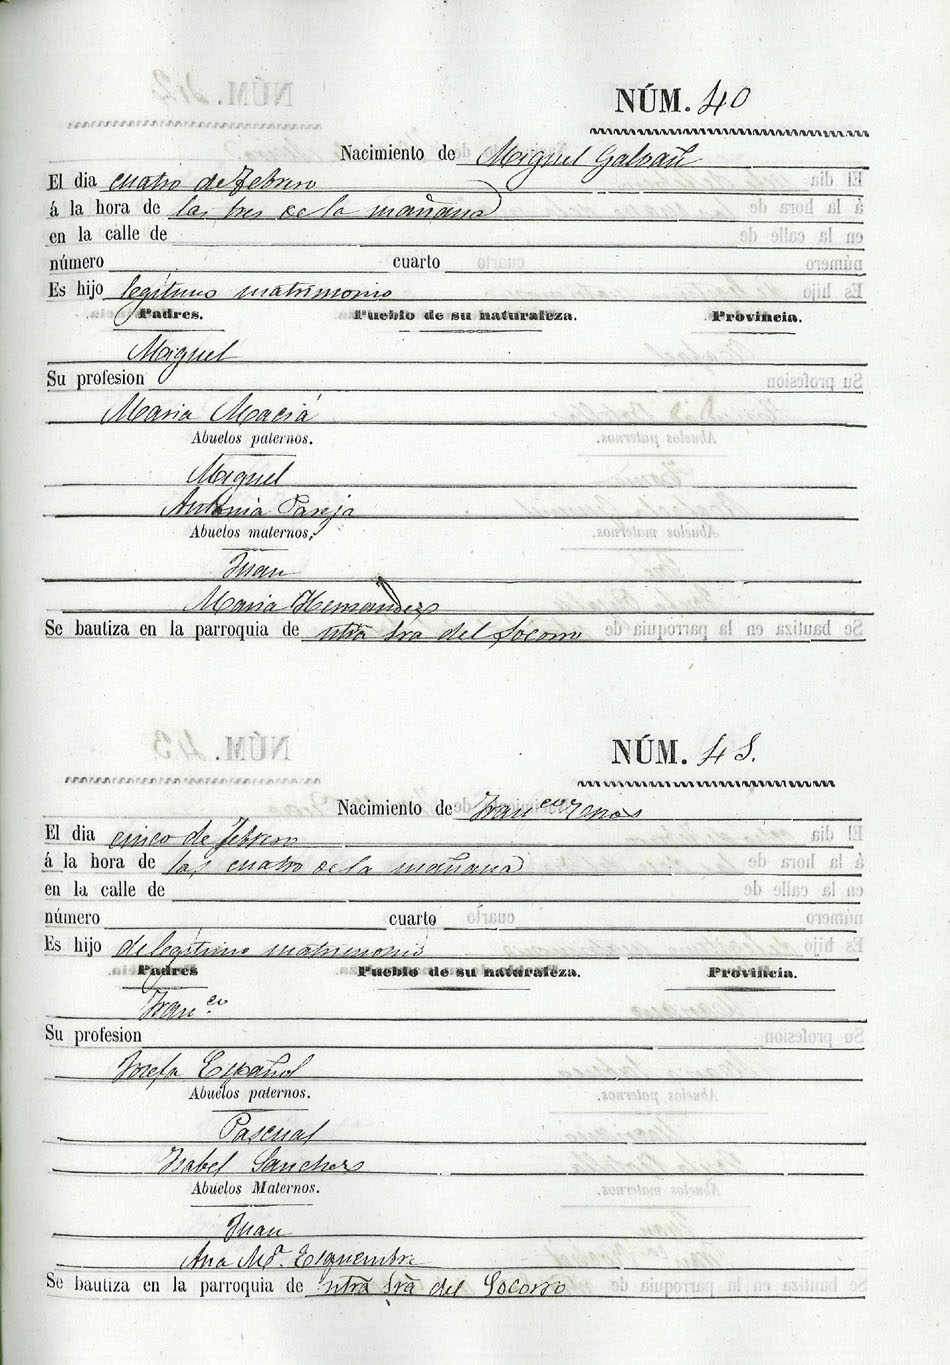 NÚM. 40
Nacimiento de Miguel Galvañ
El dia cuatro de Febrero
á la hora de las tres de la mañana
en la calle de
número cuarto
Es hijo legítimo matrimonio
Padres. Pueblo de su naturaleza. Provincia.
Miguel
Su profesion
Maria Maciá
Abuelos paternos.
Miguel
Antonia Pareja
Abuelos maternos.
Juan
Maria Hernandez
Se bautiza en la parroquia de ntra Sra del Socorro
NÚM. 41.
Nacimiento de Fran.co
El dia cinco de Febrero
á la hora de las cuatro de la mañana
en la calle de
número cuarto
Es hijo de legítimo matrimonio
Padres Pueblo de su naturaleza. Provincia.
Fran.co
Su profesion
Josefa Español
Abuelos paternos.
Pascual
Isabel Sanchez
Abuelos Maternos.
Juan
Ana Mª. Esquembre
Se bautiza en la parroquia de ntra Sra del Socorro